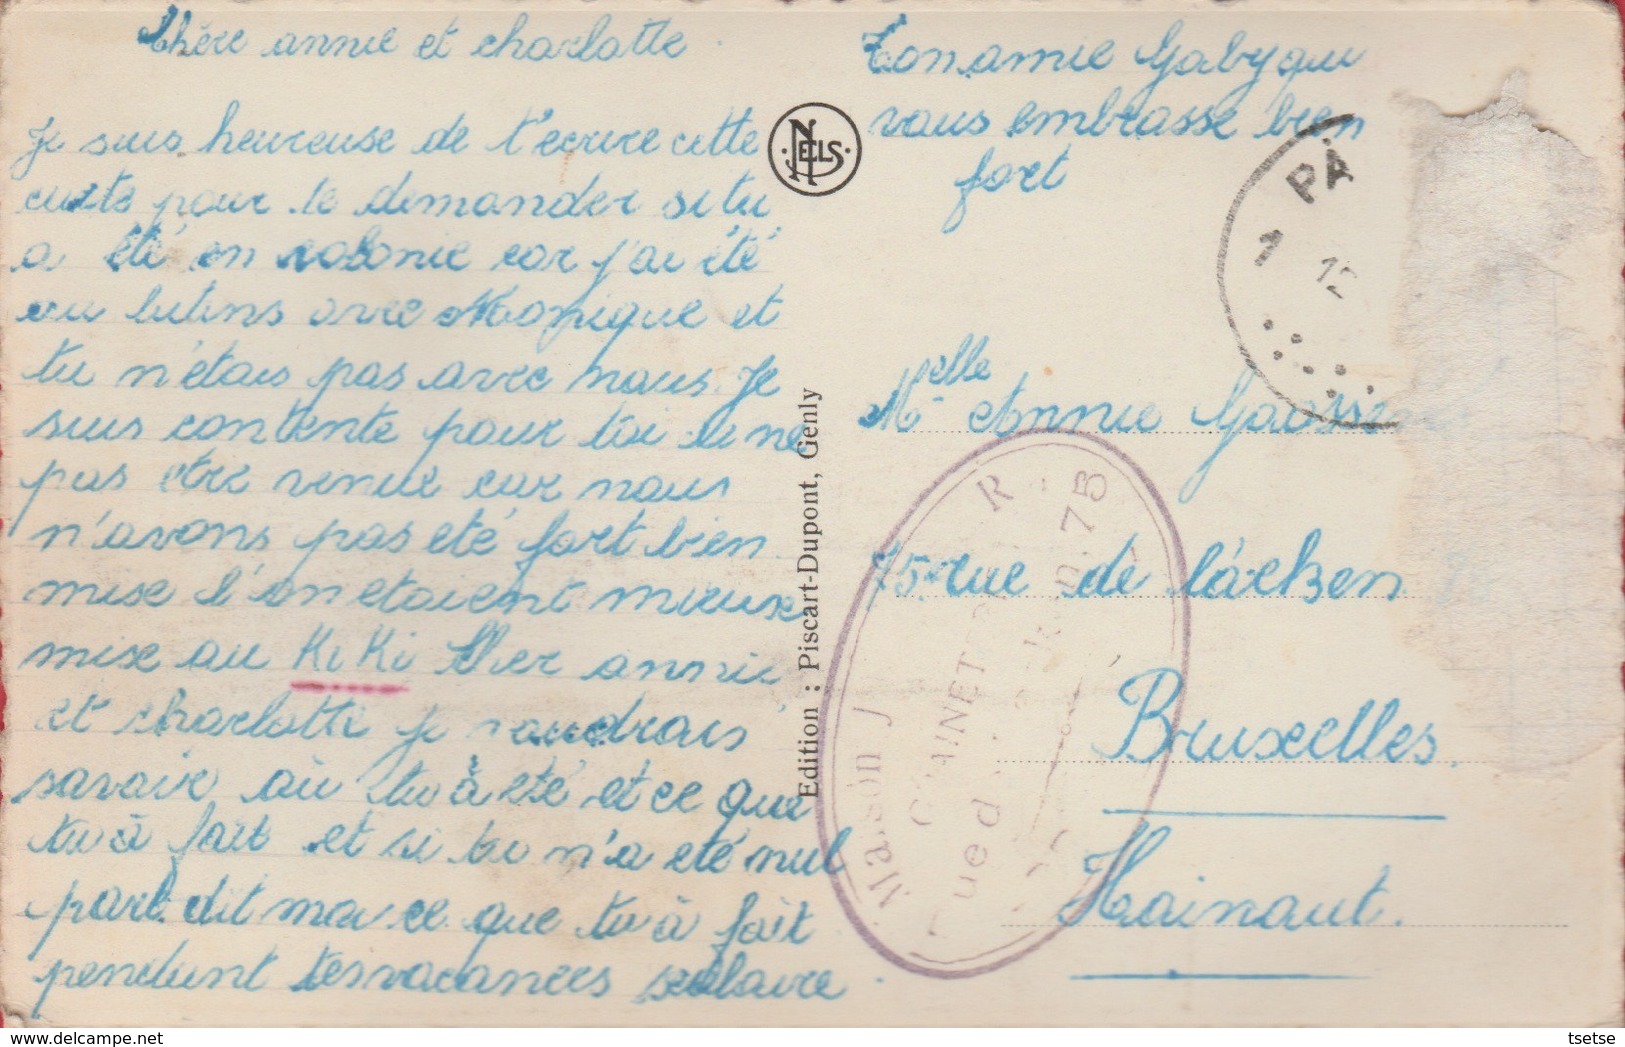 Chère annie et charlotte
Je suis heureuse de t'écrire cette
carte pour te demander si tu
a été en colonie car j'ai été
au lutins avec Monique et
tu n'étais pas avec nous. Je
suis contente pour toi de ne
pas être venue car nous
n'avons pas eté fort bien
mise l'on etaient mieux
mise au KiKi Cher annie
et charlotte je voudrais
savoir où tu à été et ce que
tu à fait et si tu n'a eté nul
part dit moi ce que tu à fait
pendant tes vacances scolaire
Ton amie Gaby qui
vous embrasse bien
fort
NELS
Edition : Piscart-Dupont, Genly
PA
1 12
Melle Annie
75 rue de
Bruxelles.
Hainaut.
Maison J R
tsetse